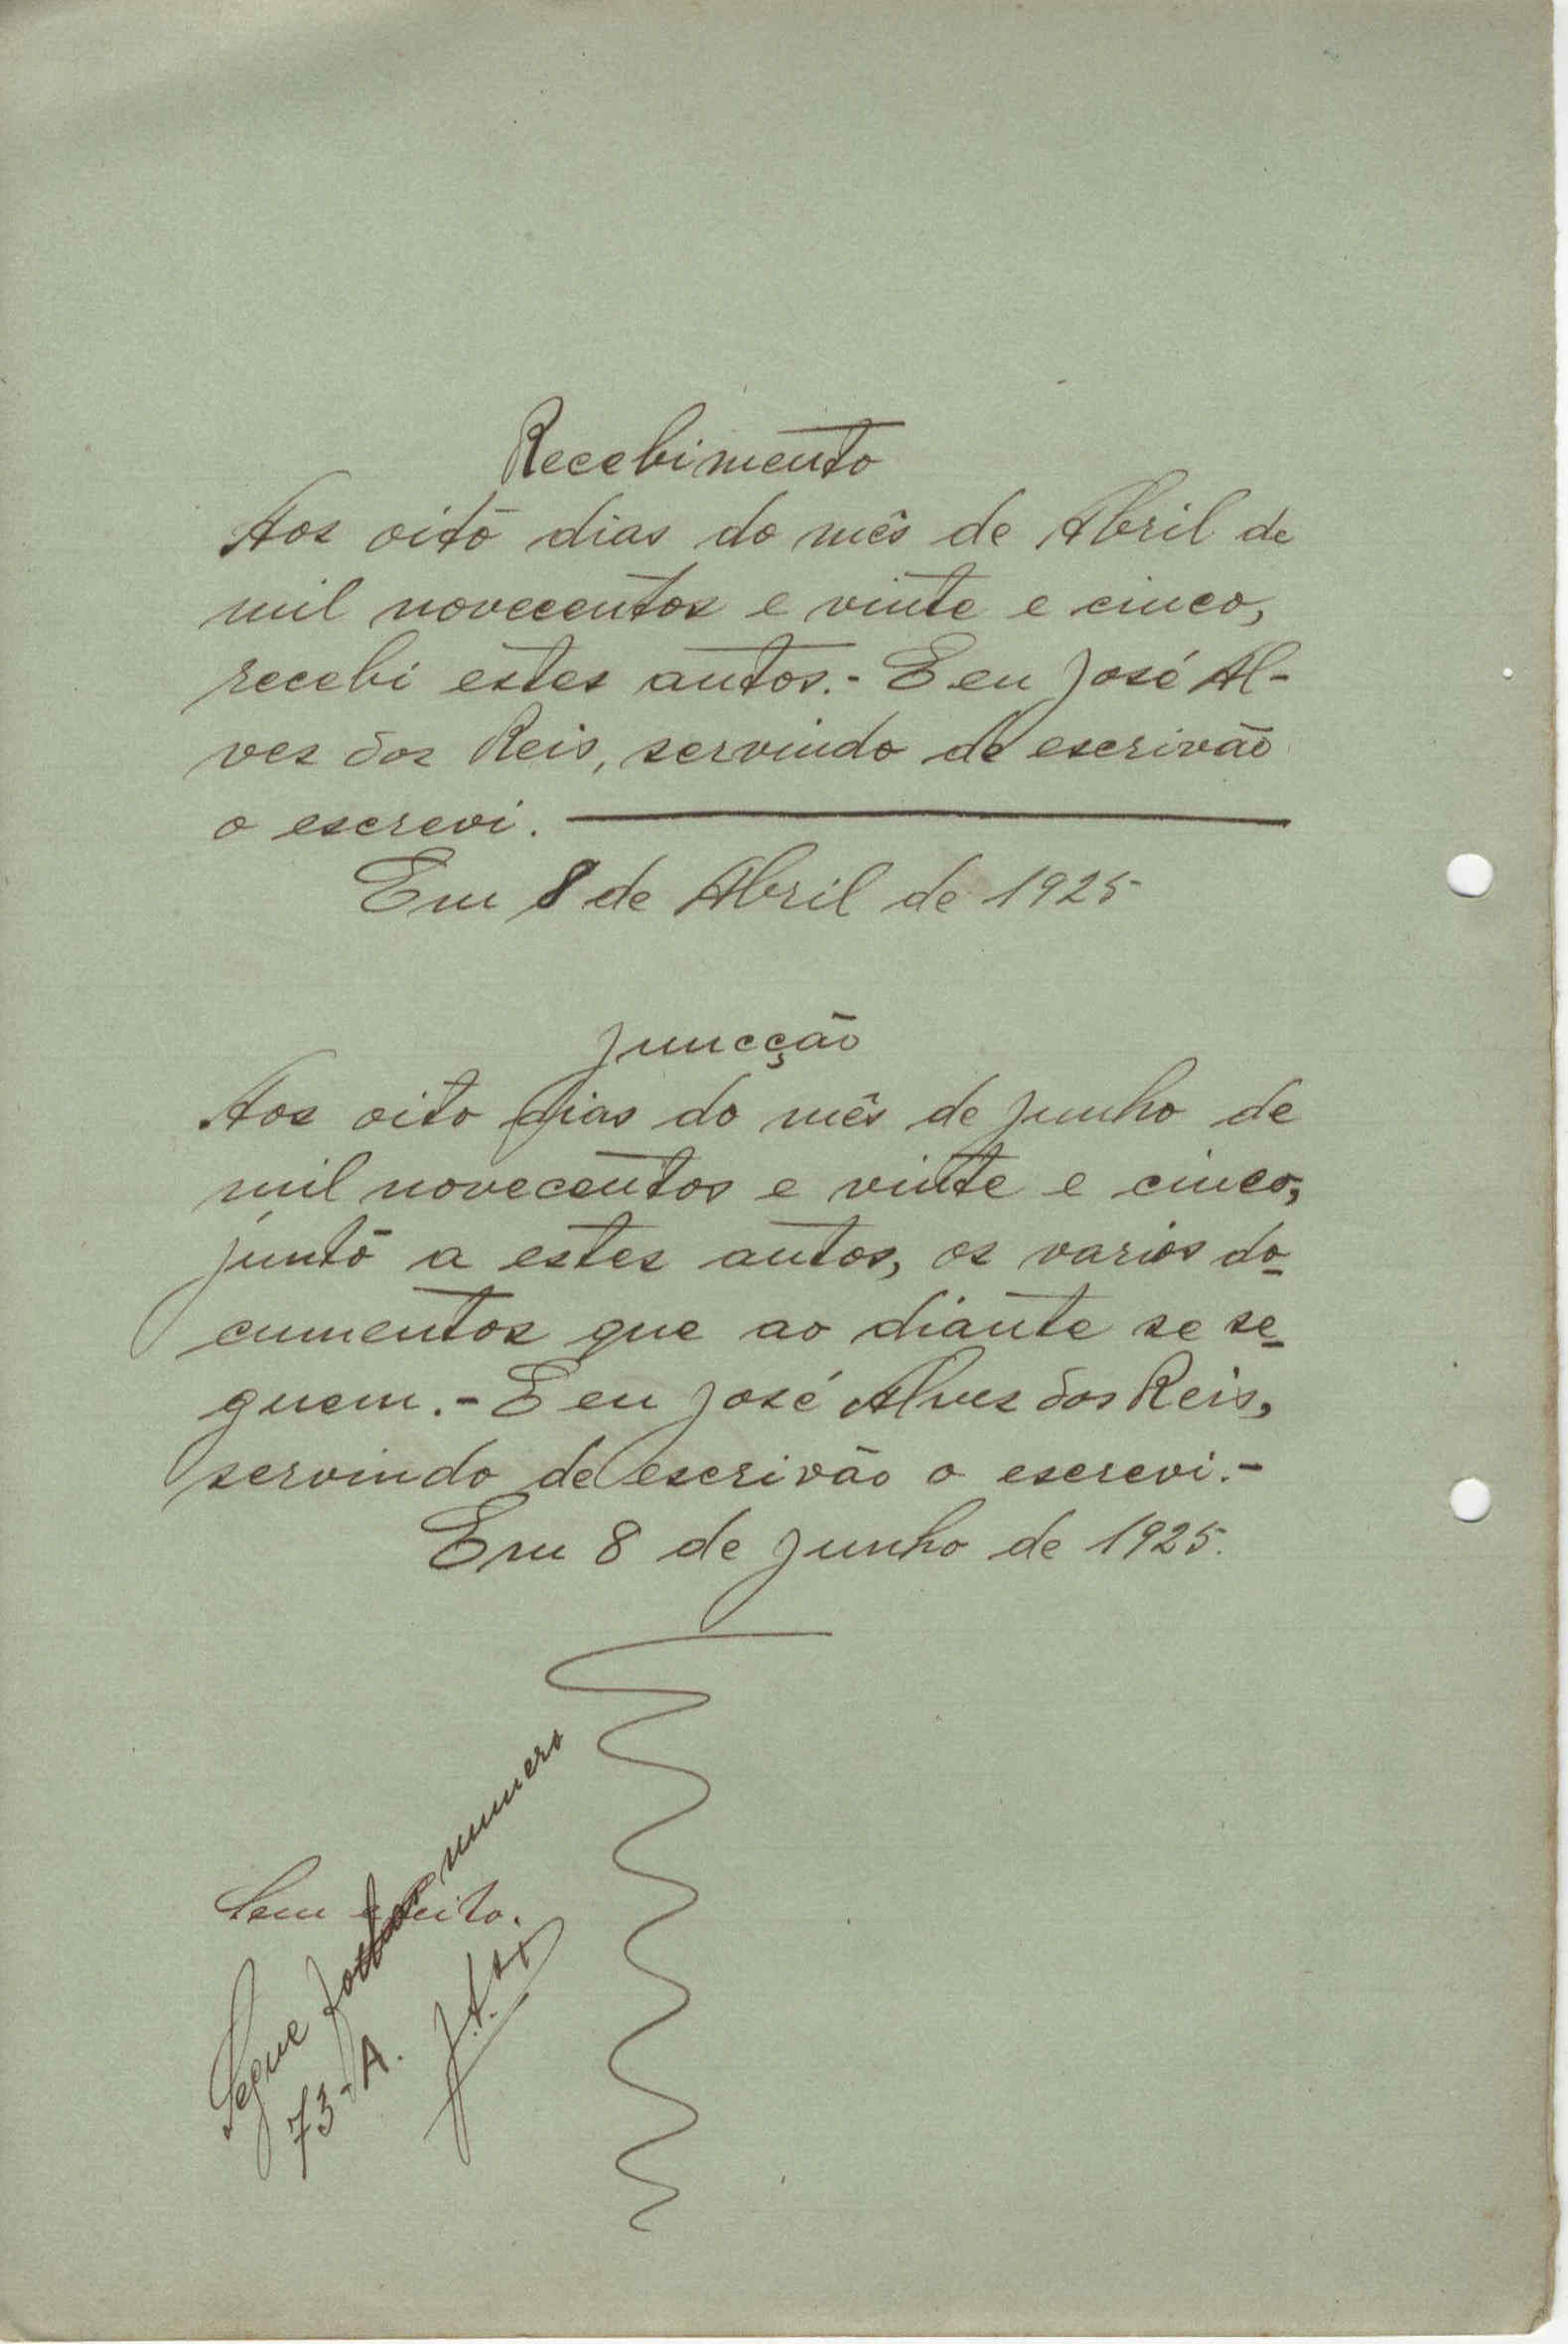 Recebimento
Aos oito dias do mês de Abril de
mil novecentos e vinte e cinco,
recebi estes autos.- E eu José Al-
ves dos Reis, servindo de escrivão
o escrevi.
Em 8 de Abril de 1925
Juncção
Aos oito dias do mês de Junho de
mil novecentos e vinte e cinco,
junto a estes autos, os varios do-
cumentos que ao diante se se-
guem.- E eu José Alves dos Reis,
servindo de escrivão o escrevi.-
Em 8 de Junho de 1925.
Sem efeito.
Segue folha numero
73-A.